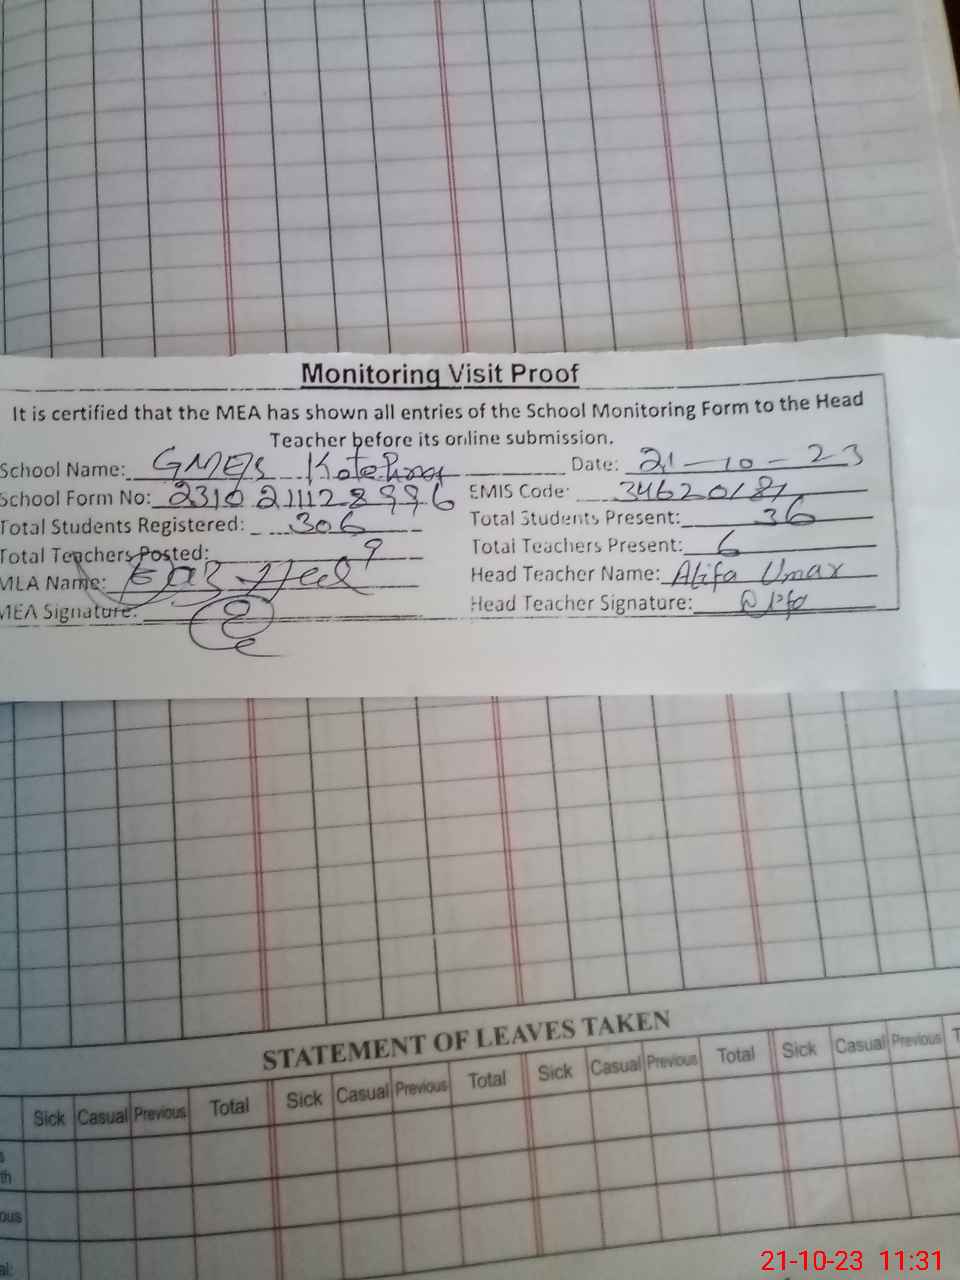 Monitoring Visit Proof
It is certified that the MEA has shown all entries of the School Monitoring Form to the Head
Teacher before its online submission.
School Name: GMES Date: 21-10-23
School Form No: 2310211128996 EMIS Code: 34620181
Total Students Registered: 306 Total Students Present: 36
Total Teachers Posted: 9 Total Teachers Present: 6
MLA Name: Head Teacher Name: Alifa Umar
MEA Signature: Head Teacher Signature:
STATEMENT OF LEAVES TAKEN
Sick Casual Previous Total Sick Casual Previous Total Sick Casual Previous Total Sick Casual Previous T
th
ous
al:
21-10-23 11:31